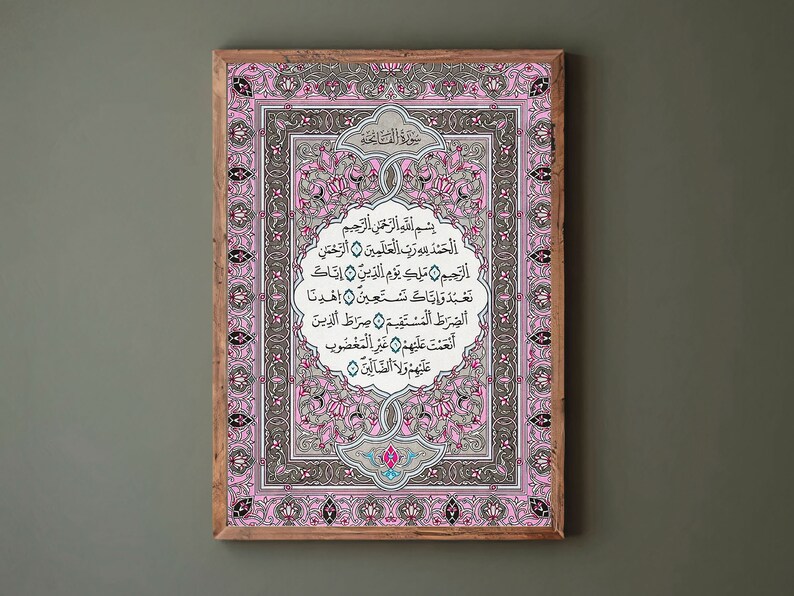 سورة الفاتحة
بسم الله الرحمن الرحيم
الحمد لله رب العالمين ۝ الرحمن
الرحيم ۝ ملك يوم الدين ۝ إياك
نعبد وإياك نستعين ۝ اهدنا
الصراط المستقيم ۝ صراط الذين
أنعمت عليهم ۝ غير المغضوب
عليهم ولا الضالين ۝